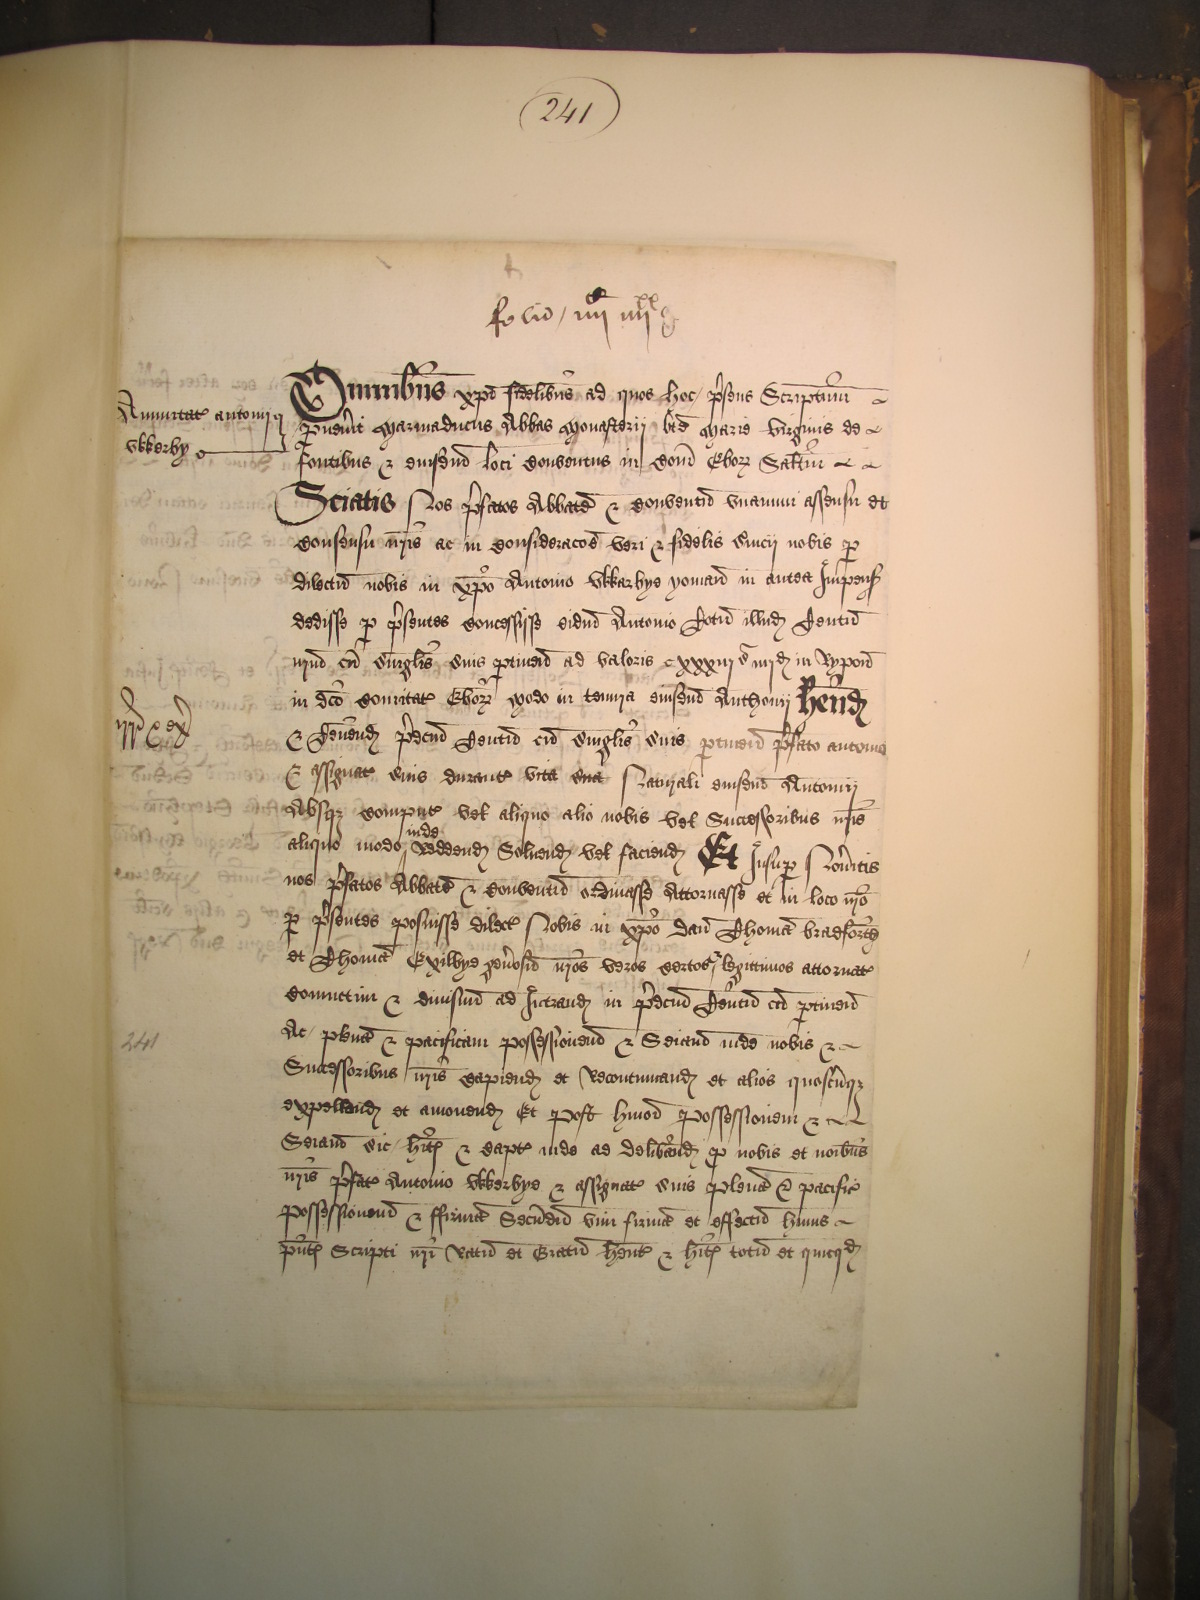 241
folio iiij iiij xx
Omnibus xp̄i fidelibus ad quos hoc p̄sens Scriptum
Annuitat antonij
pueñit Marmaducus Abbas Monasterij bt̄e Marie virginis de
vkkerby
fontibus & eiusdem loci conventus in com̄ Eboȝ Sal̄tm
Sciatis Nos p̄fatos Abbatē & conventū vnanimi assensu et
consensu nr̄is ac in consideracōe veri & fidelis s̄uicij nobis p
dilectū nobis in xp̄o Antonio vkkarbye yoman̄ in antea Impens
dedisse p p̄sentes concessisse eidm̄ Antonio Totū illud Tentū
nr̄m̄ cū singlis suis ptineñ ad valoris xxxiijs iiijd in Rypon̄
in dc̄o comitat Eboȝ modo in tenura eiusdm̄ Anthonij Hend
& Tenend p̄dcm̄ Tentū cū singlis suis ptineñ p̄fato antonio
& assignat suis durante vita sua Naturali eiusdm̄ Antonij
Absqȝ compute vel aliquo alio nobis vel Successoribus nr̄is
aliquo modo inde Reddend Soluend vel faciend Et Insup Noveritis
nos p̄fatos Abbatē & conventū ordinasse Attornasse et in loco nr̄o
p p̄sentes posuisse dilect Nobis in xp̄o Dan̄ Thomā bradforth
et Thomā Exilbye geñosū nr̄os veros certos & legittimos attornat
coniunctim & diuisim̄ ad Intrand in p̄dcm̄ Tentū cū ptineñ
241
Ac plenā & pacificam possessionem̄ & Seianam̄ inde nobis &
Successoribus nr̄is capiend et Recontinuand et alios quoscūqȝ
expellend et amouend Et post hmōi possessionem &
Seianam̄ sic hit & capt inde ad delib̄and p nobis et noībus
nr̄is p̄fat Antonio vkkerbye & assignat suis plenā & pacificā
possessionem̄ & ffirmā Secūdū vim firmā et effectū huius
p̄nt Scripti nr̄i Ratū et Gratū hent & hit totū et quicqd